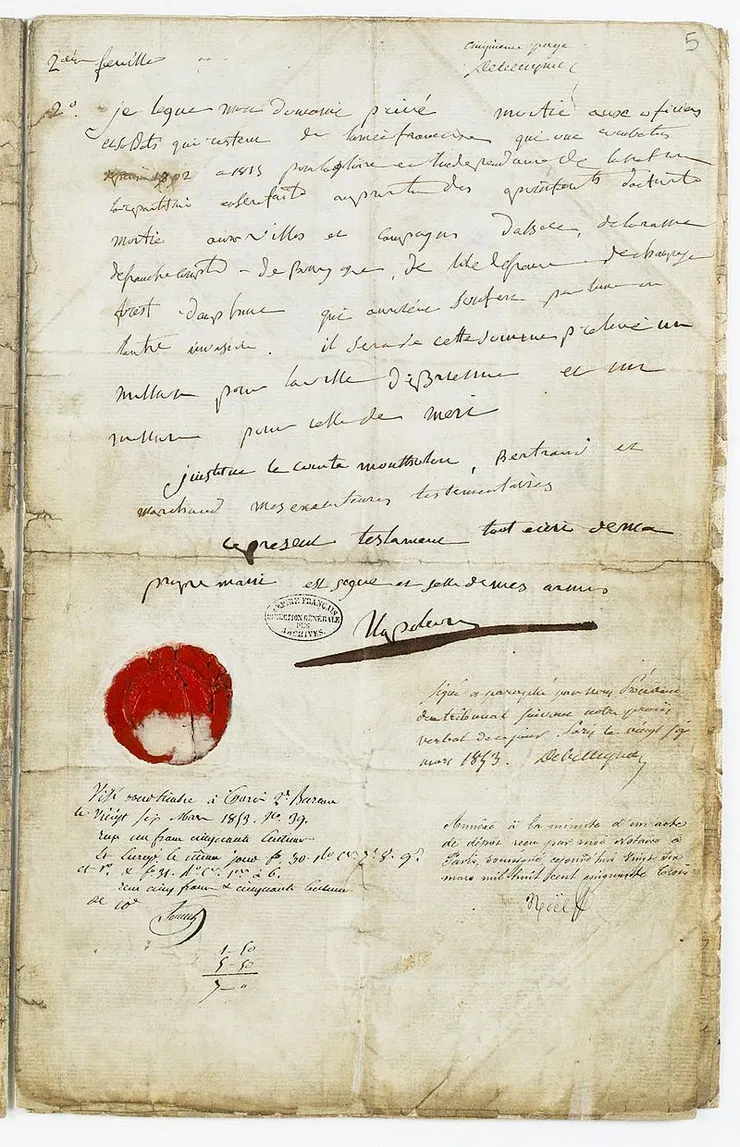 5
cinquième page
2ème feuille
2°. je legue mon domaine privé moitié aux officiers
et soldats qui restent de larmée francaise qui ont combatus
1792 a 1815 pour la gloire et lindependance de la nation
la repartition en sera faite au prorata des apointements dactivite
moitié aux villes et campagnes dalsace, de loraine
de franche comté - de Bourgogne, de lile de france de champagne
forest dauphiné qui auroient soufert par lune ou
lautre invasion. il sera de cette somme prelevé un
million pour la ville de Brienne et un
million pour celle de meri
jinstitue le comte montholon, Bertrand et
marchand mes executeurs testamentaires
ce present testament tout ecrit de ma
propre main est signé et sellé de mes armes
EMPIRE FRANÇAIS
DIRECTION GÉNÉRALE
DES
ARCHIVES.
Napoleon
Signé et paraphé par nous Président
du tribunal suivant notre procès
verbal de ce jour. Paris le vingt six
mars 1853. Debelleyme
Visé pour timbre à Paris 2e. Bureau
le Vingt six Mars 1853. No. 39.
reçu un franc cinquante centimes
et Enregé. le même jour fo. 30. Ro. Ces. 7. 8. 9.
et Vo. & fo 31. Ro. Ces. 1er. à 6.
reçu cinq francs & cinquante centimes
de 10e
Annexé à la minute d'un acte
de dépôt reçu par moi Notaire à
Paris, soussigné cejourd'hui vingt six
mars mil huit cent cinquante trois
Noël
1 - 50
5 50
7 - "